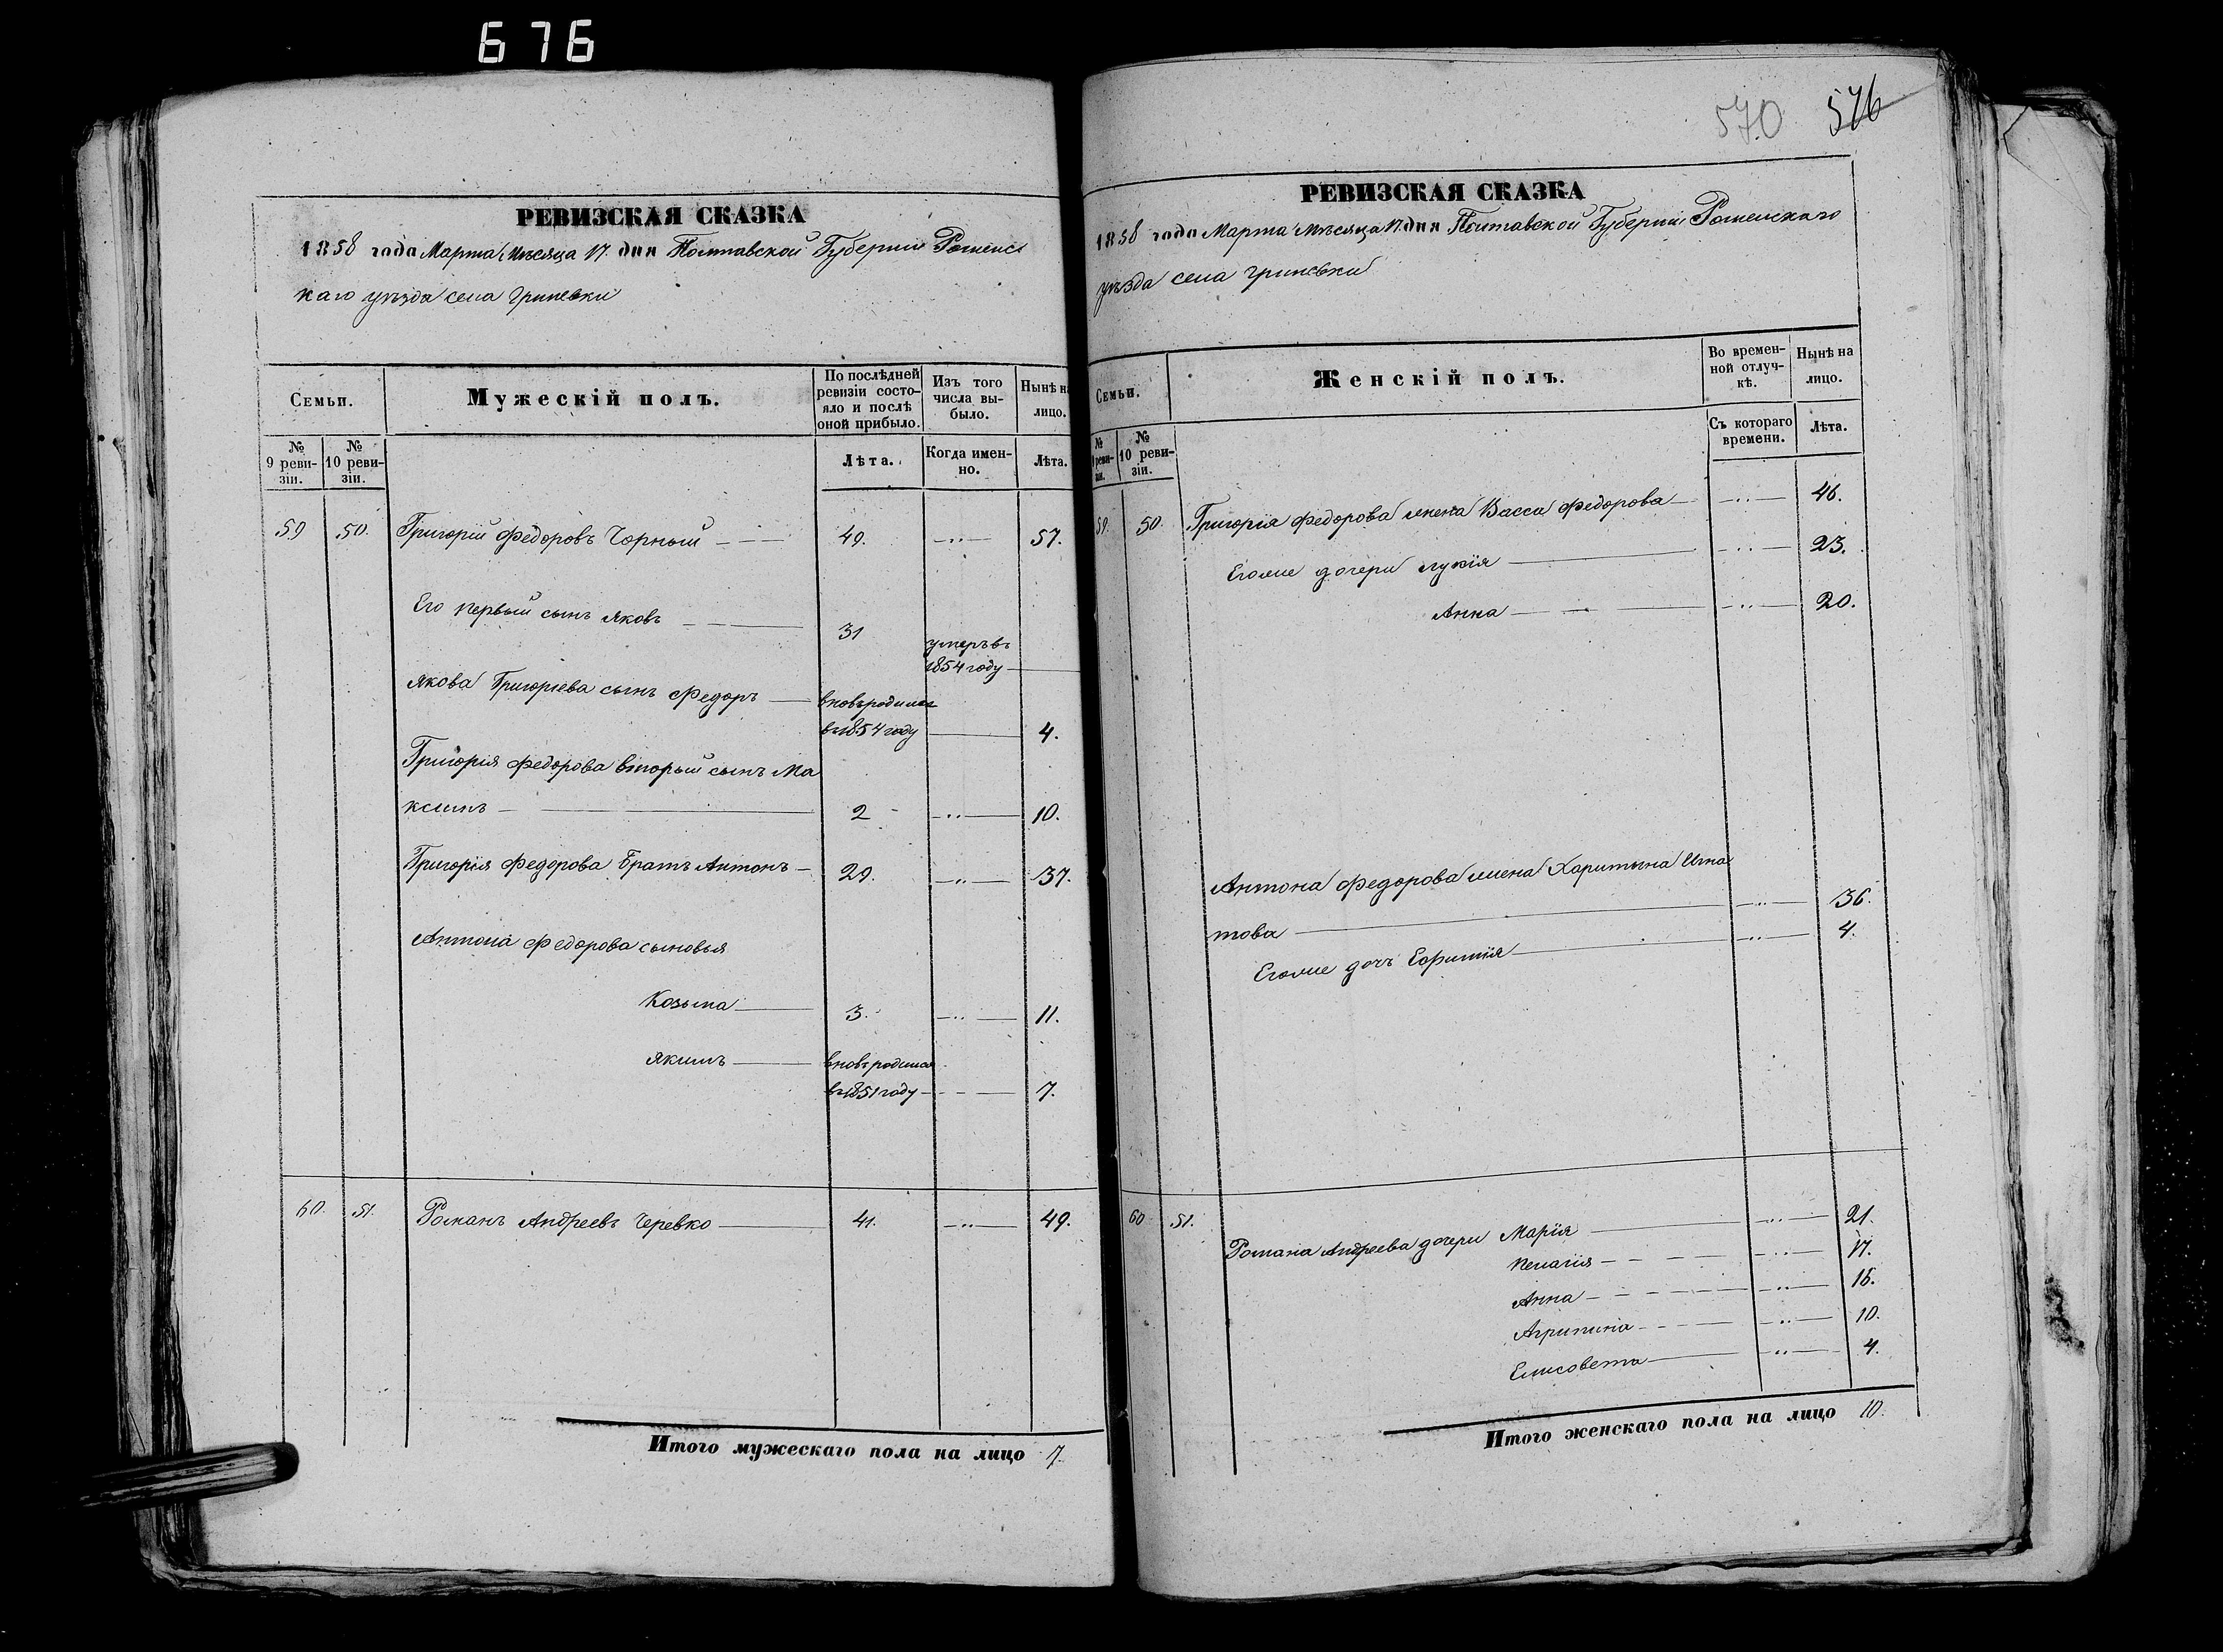 676
РЕВИЗСКАЯ СКАЗКА
1858 года Марта Мѣсяца 17. дня Полтавской Губерніи Роменс
каго уѣзда села Гриневки
Семьи.
Мужескій полъ.
По послѣдней ревизіи состояло и послѣ оной прибыло.
Изъ того числа выбыло.
Нынѣ на лицо.
№ 9 ревизіи.
№ 10 ревизіи.
Лѣта.
Когда именно.
Лѣта.
59 50. Григорій Федоровъ Чорный 49. 57.
Его первый сынъ Яковъ 31 умеръ въ
1854 году
Якова Григорьева сынъ Федоръ вновь родился
въ 1854 году 4.
Григорія Федорова вторый сынъ Ма
ксимъ 2 10.
Григорія Федорова братъ Антонъ 29. 37.
Антона Федорова сыновья
Козьма 3. 11.
Якимъ вновь родился
въ 1851 году 7.
60. 51. Романъ Андреевъ Черевко 41. 49.
Итого мужескаго пола на лицо 7
570 576
РЕВИЗСКАЯ СКАЗКА
1858 года Марта Мѣсяца 17. дня Полтавской Губерніи Роменскаго
уѣзда села Гриневки
Семьи.
Женскій полъ.
Во временной отлучкѣ.
Нынѣ на лицо.
№ 9 ревизіи.
№ 10 ревизіи.
Съ котораго времени.
Лѣта.
59. 50. Григорія Федорова жена Васса Федорова 46.
Его же дочери Лукія 23.
Анна 20.
Антона Федорова жена Харитына Игна
това 36.
Его же дочь Ефимія 4.
60 51.
Романа Андреева дочери Марія 21.
Пелагія 17.
Анна 15.
Агрипина 10.
Елисовета 4.
Итого женскаго пола на лицо 10.